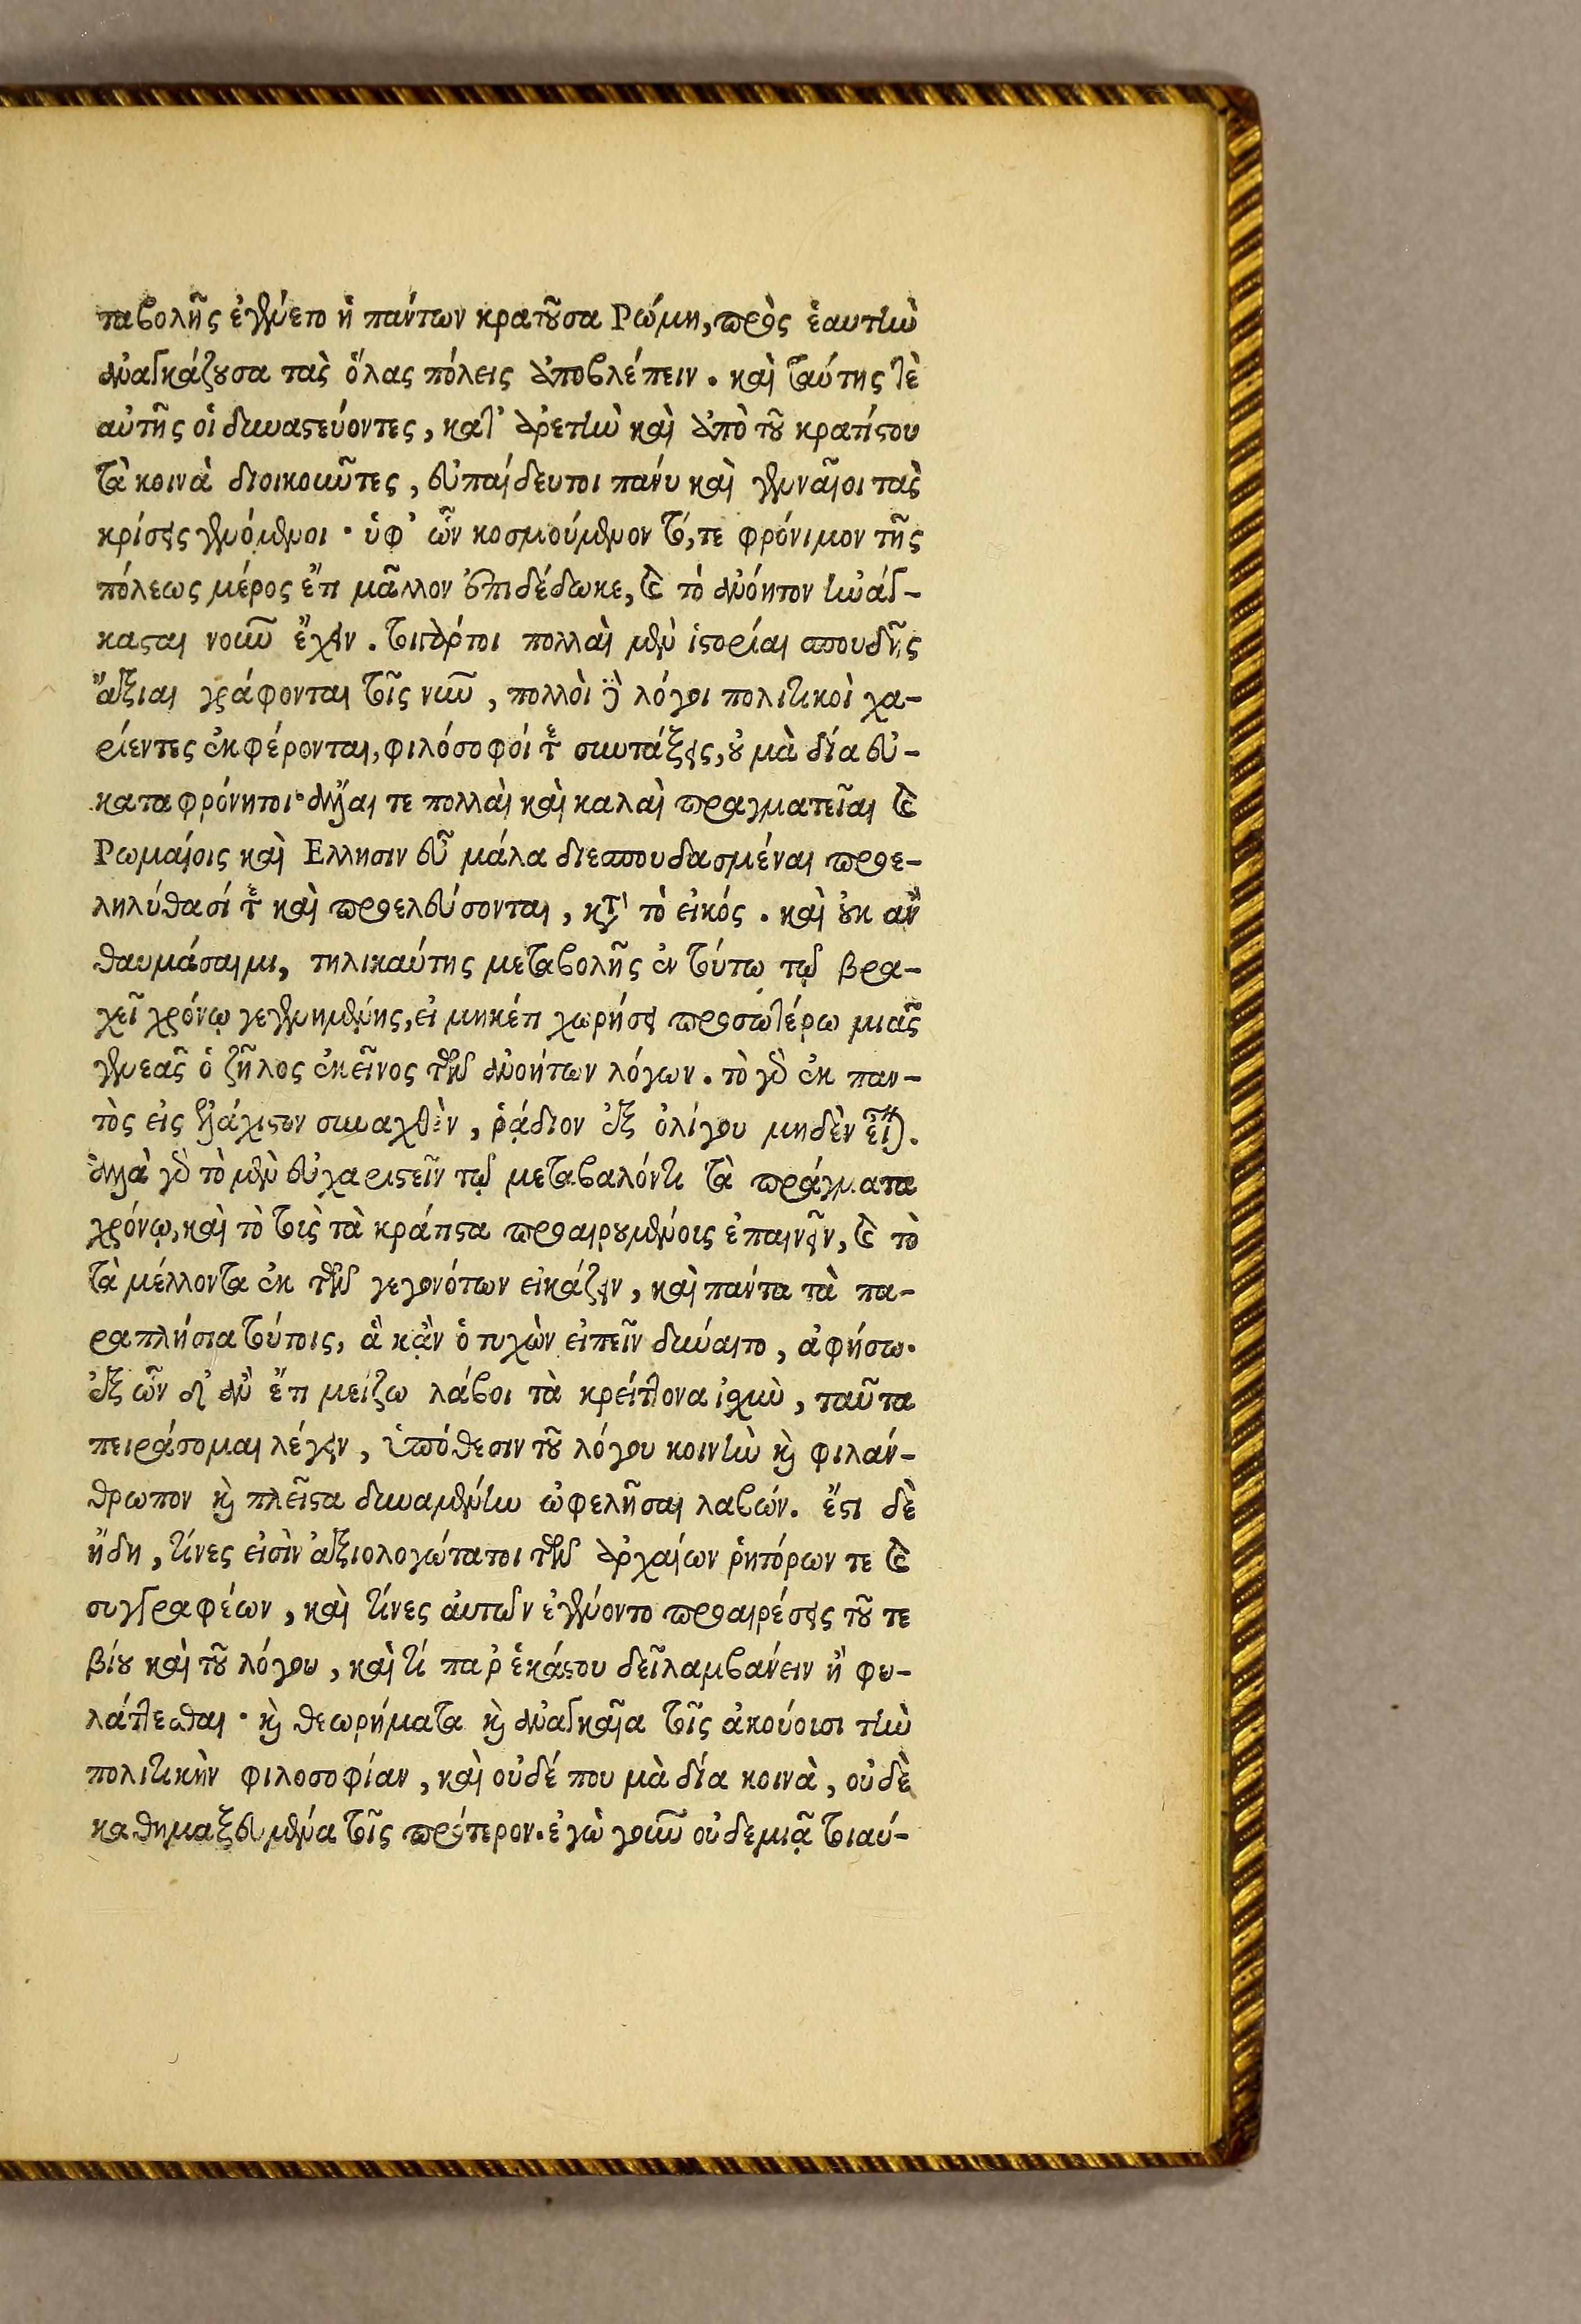 ταβολῆς ἐγένετο ἡ πάντων κρατοῦσα Ρώμη, πρὸς ἑαυτὴν
ἀναγκάζουσα τὰς ὅλας πόλεις ἀποβλέπειν. καὶ ταύτης τὲ
αὐτῆς οἱ δυναστεύοντες, κατ' ἀρετὴν καὶ ἀπὸ τοῦ κρατίστου
τὰ κοινὰ διοικοῦντες, εὐπαίδευτοι πάνυ καὶ γενναῖοι τὰς
κρίσεις γενόμενοι· ὑφ' ὧν κοσμούμενον τό, τε φρόνιμον τῆς
πόλεως μέρος ἔτι μᾶλλον ἐπιδέδωκε, καὶ τὸ ἀνόητον ἠνάγ-
κασται νοῦν ἔχειν. τοιγάρτοι πολλαὶ μὲν ἱστορίαι σπουδῆς
ἄξιαι γράφονται τοῖς νῦν, πολλοὶ δὲ λόγοι πολιτικοὶ χα-
ρίεντες ἐκφέρονται, φιλόσοφοί τε συντάξεις, οὐ μὰ δία εὐ-
καταφρόνητοι· ἄλλαι τε πολλαὶ καὶ καλαὶ πραγματεῖαι καὶ
Ρωμαίοις καὶ Ελλησιν εὖ μάλα διεσπουδασμέναι προε-
ληλύθασί τε καὶ προελεύσονται, κατὰ τὸ εἰκός. καὶ οὐκ ἂν
θαυμάσαιμι, τηλικαύτης μεταβολῆς ἐν τούτῳ τῷ βρα-
χεῖ χρόνῳ γεγενημένης, εἰ μηκέτι χωρήσει προσωτέρω μιᾶς
γενεᾶς ὁ ζῆλος ἐκεῖνος τῶν ἀνοήτων λόγων. τὸ γὰρ ἐκ παν-
τὸς εἰς ἐλάχιστον συναχθὲν, ῥᾴδιον ἐξ ὀλίγου μηδὲν εἶναι.
ἀλλὰ γὰρ τὸ μὲν εὐχαριστεῖν τῷ μεταβαλόντι τὰ πράγματα
χρόνῳ, καὶ τὸ τοὺς τὰ κράτιστα προαιρουμένοις ἐπαινεῖν, καὶ τὸ
τὰ μέλλοντα ἐκ τῶν γεγονότων εἰκάζειν, καὶ πάντα τὰ πα-
ραπλήσια τούτοις, ἃ κᾂν ὁ τυχὼν εἰπεῖν δύναιτο, ἀφήσω.
ἐξ ὧν δ' ἂν ἔτι μείζω λάβοι τὰ κρείττονα ἰσχὺν, ταῦτα
πειράσομαι λέγειν, ὑπόθεσιν τοῦ λόγου κοινὴν καὶ φιλάν-
θρωπον καὶ πλεῖστα δυναμένην ὠφελῆσαι λαβών. ἔστι δὲ
ἥδη, τίνες εἰσὶν ἀξιολογώτατοι τῶν ἀρχαίων ῥητόρων τε καὶ
συγγραφέων, καὶ τίνες ἀυτῶν ἐγένοντο προαιρέσεις τοῦ τε
βίου καὶ τοῦ λόγου, καὶ τί παρ ἑκάστου δεῖ λαμβάνειν ἢ φυ-
λάττεσθαι· καὶ θεωρήματα καὶ ἀναγκαῖα τοῖς ἀκούουσι τὴν
πολιτικὴν φιλοσοφίαν, καὶ οὐδέ που μὰ δία κοινὰ, οὐδὲ
καθημαξευμένα τοῖς πρότερον. ἐγὼ γοῦν οὐδεμιᾷ τοιαύ-